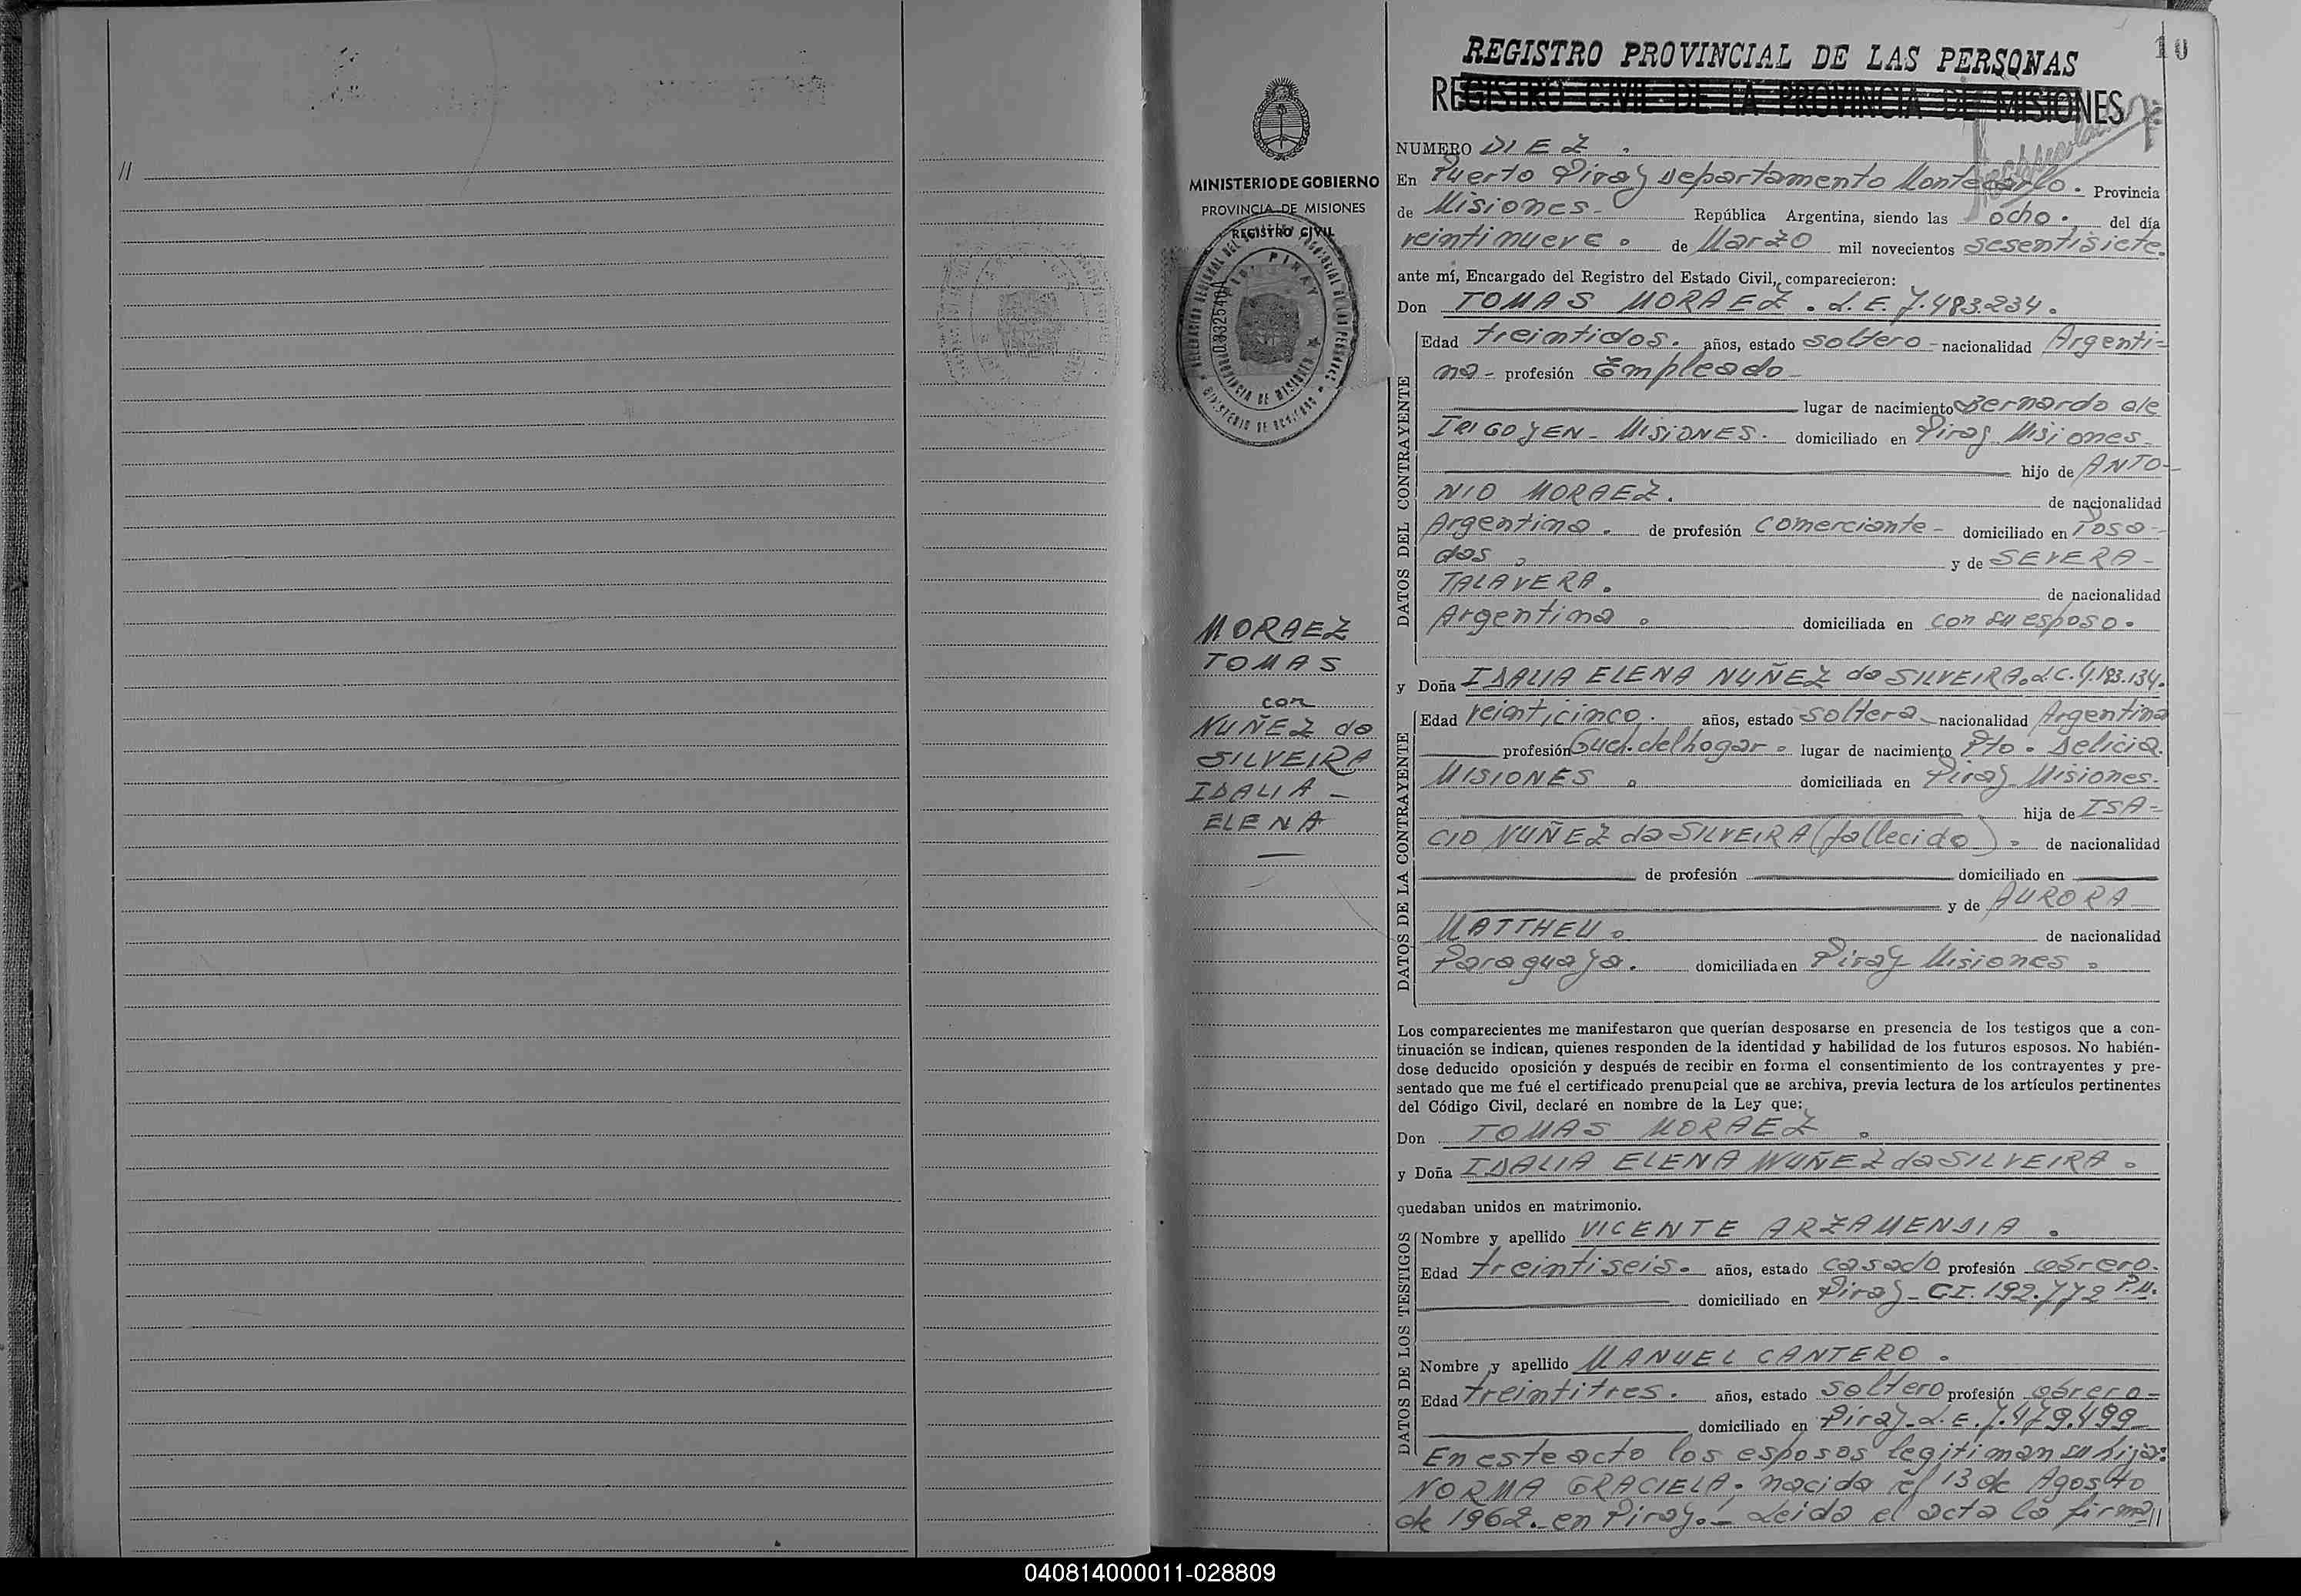 //
10
REGISTRO PROVINCIAL DE LAS PERSONAS
REGISTRO CIVIL DE LA PROVINCIA DE MISIONES
MINISTERIO DE GOBIERNO
PROVINCIA DE MISIONES
REGISTRO CIVIL
MORAEZ
TOMAS
con
NUÑEZ da
SILVEIRA
IDALIA -
ELENA
NUMERO DIEZ .
En Puerto Piray departamento Montecarlo. Provincia
de Misiones - República Argentina, siendo las ocho. del día
veintinueve . de Marzo mil novecientos sesentisiete.
ante mí, Encargado del Registro del Estado Civil, comparecieron:
Don TOMAS MORAEZ . L.E. 7.483.234.
DATOS DEL CONTRAYENTE
Edad treintidos. años, estado soltero - nacionalidad Argenti-
na - profesión Empleado -
lugar de nacimiento Bernardo de
IRIGOYEN - MISIONES. domiciliado en Piray Misiones -
hijo de ANTO-
NIO MORAEZ. de nacionalidad
Argentina . de profesión comerciante - domiciliado en Posa-
das . y de SEVERA -
TALAVERA. de nacionalidad
Argentina . domiciliada en con su esposo.
y Doña IDALIA ELENA NUÑEZ da SILVEIRA. L.C. 4.193.134.
DATOS DE LA CONTRAYENTE
Edad veinticinco. años, estado soltera - nacionalidad Argentina
profesión Qued. del hogar . lugar de nacimiento Pto. Delicia.
MISIONES . domiciliada en Piray Misiones.
hija de ISA-
CIO NUÑEZ da SILVEIRA (fallecido) . de nacionalidad
de profesión domiciliado en
y de AURORA
MATTHEU . de nacionalidad
Paraguaya. domiciliada en Piray Misiones .
Los comparecientes me manifestaron que querían desposarse en presencia de los testigos que a con-
tinuación se indican, quienes responden de la identidad y habilidad de los futuros esposos. No habién-
dose deducido oposición y después de recibir en forma el consentimiento de los contrayentes y pre-
sentado que me fué el certificado prenupcial que se archiva, previa lectura de los artículos pertinentes
del Código Civil, declaré en nombre de la Ley que:
Don TOMAS MORAEZ .
y Doña IDALIA ELENA NUÑEZ da SILVEIRA .
quedaban unidos en matrimonio.
DATOS DE LOS TESTIGOS
Nombre y apellido VICENTE ARZAMENDIA .
Edad treintiseis. años, estado casado profesión obrero.
domiciliado en Piray - C.I. 192.772 P.M.
Nombre y apellido MANUEL CANTERO .
Edad treintitres. años, estado soltero profesión obrero -
domiciliado en Piray - L.E. 7.479.499
En este acto los esposos legitiman su hija:
NORMA GRACIELA; nacida el 13 de Agosto
de 1962. en Piray. - Leida el acta la firma//
040814000011-028809